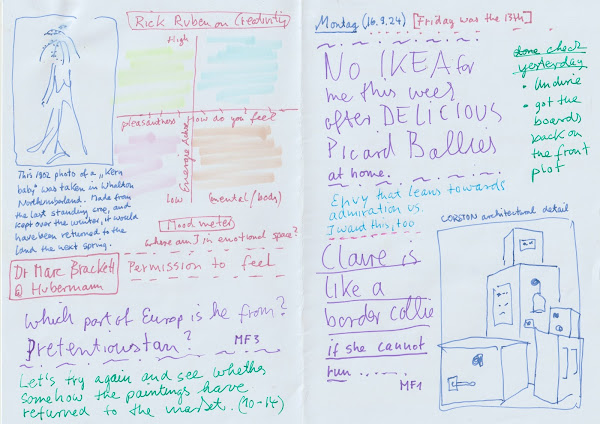 Rick Ruben on Creativity
High
pleasantness
How do you feel
Energie Achse
Low
(mental/body)
This 1902 photo of a "Kern
baby" was taken in Whalton
Northumberland. Made from
the last standing crop, and
kept over the winter, it would
have been returned to the
land the next spring.
Mood meter
Where am I in emotional space?
Dr Marc Brackett
@ Hubermann
Permission to feel
Which part of Europ is he from?
Pretentioustan?
MF3
Let's try again and see whether
somehow the paintings have
returned to the market. (10-14)
Montag (16.9.24)
[Friday was the 13th]
No IKEA for
me this week
after DELICIOUS
Picard Ballies
at home.
Envy that leans towards
admiration vs.
I want this, too
Claire is
like a
border collie
if she cannot
run .......
MF1
done check
yesterday
• Undine
• got the
boards
back on
the front
plot
CORSTON architectural detail